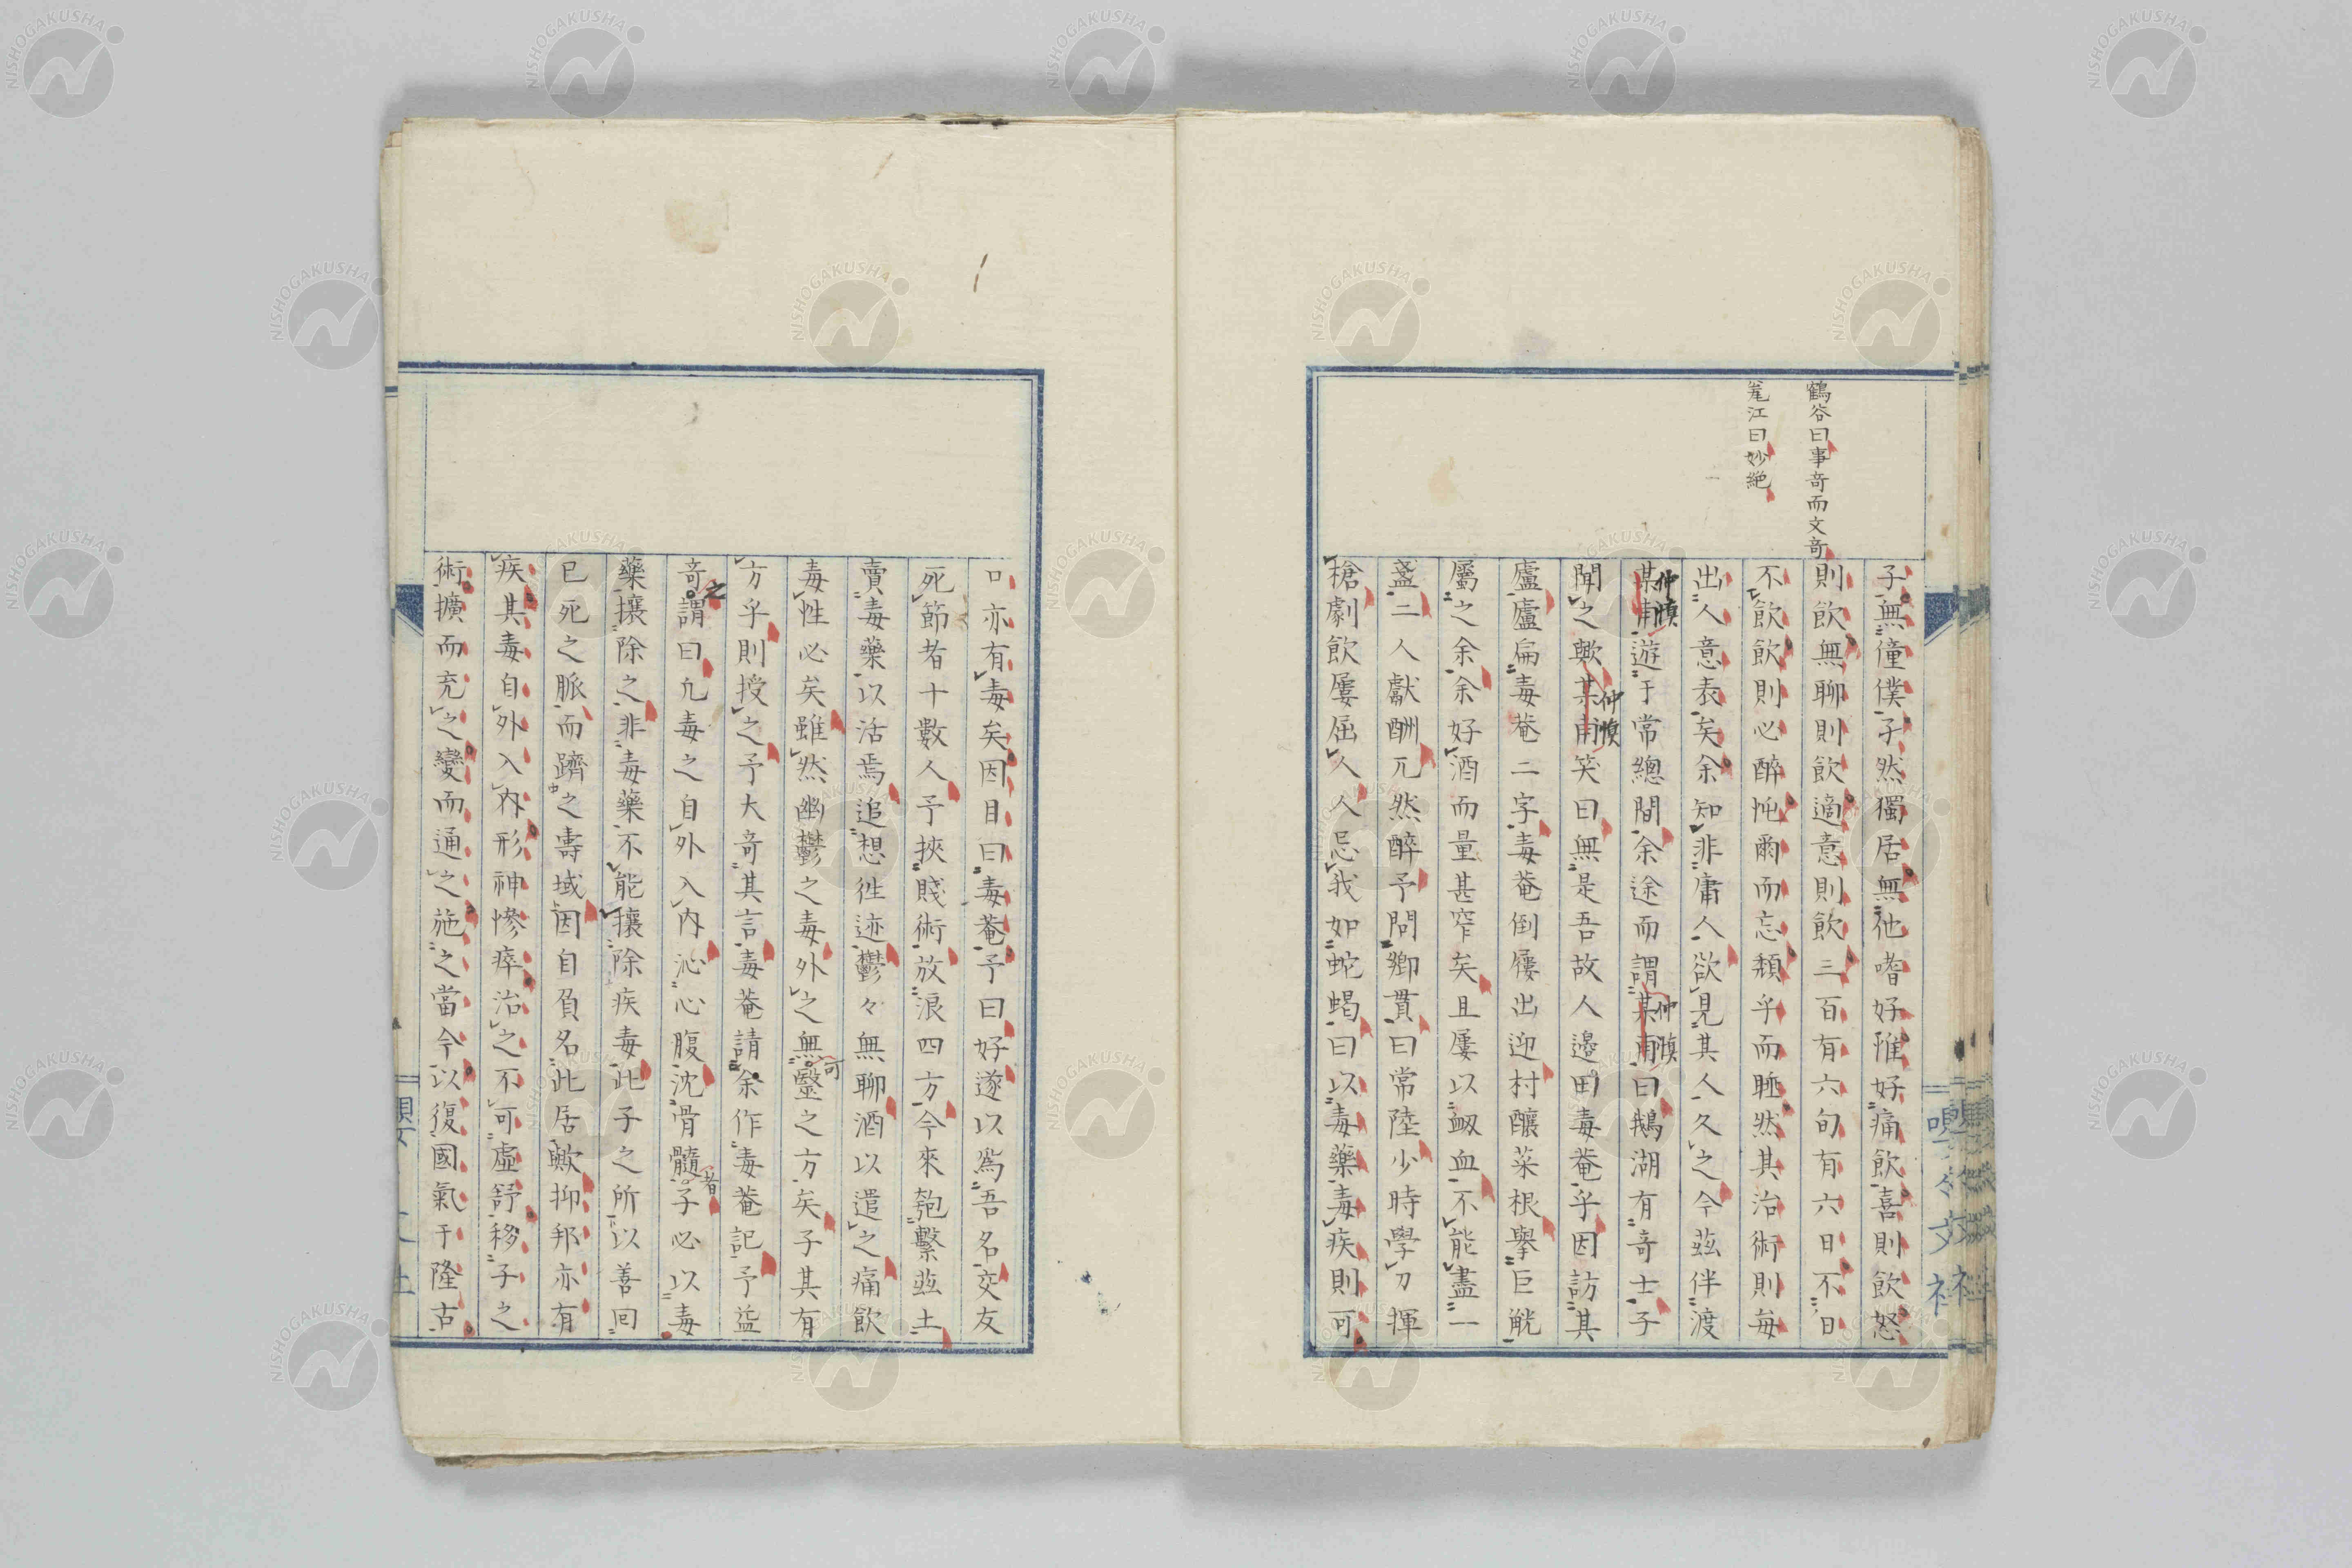 鶴谷曰事奇而文奇
子無僮僕孑然獨居無他嗜好推好痛飲喜則飲怒
則飲無聊則飲適意則飲三百有六旬有六日不日
不飲飲則必醉忳爾而忘頽乎而睡然其治術則每
出人意表矣余知非庸人欲見其人久之今茲伴渡
某甫遊于常總間余途而謂某甫曰鵝湖有奇士子
仲愼
仲愼
聞之歟某甫笑曰無是吾故人邊田毒菴乎因訪其
仲愼
廬廬扁毒菴二字毒菴倒屨出迎村釀菜根擧巨觥
屬之余余好酒而量甚窄矣且屢以衂血不能盡一
盞二人獻酬兀然醉予問鄉貫曰常陸少時學刀揮
槍劇飲屢屈人人忌我如蛇蝎曰以毒藥毒疾則可
口亦有毒矣因目曰毒菴予曰好遂以爲吾名交友
死節者十數人予挾賤術放浪四方今來匏繫茲土
賣毒藥以活焉追想徃迹鬱々無聊酒以遣之痛飲
毒性必矣雖然幽鬱之毒外之無毉之方矣子其有
可
方乎則授之予大奇其言毒菴請余作毒菴記予益
奇謂曰凢毒之自外入內沁心腹沈骨髓子必以毒
之
者
藥攘除之非毒藥不能攘除疾毒此子之所以善回
已死之脈而躋之壽域因自負名此居歟抑邦亦有
疾其毒自外入內形神慘瘁治之不可虛舒移子之
術擴而充之變而通之施之當今以復國氣于隆古
嚶々文社
NISHOGAKUSHA